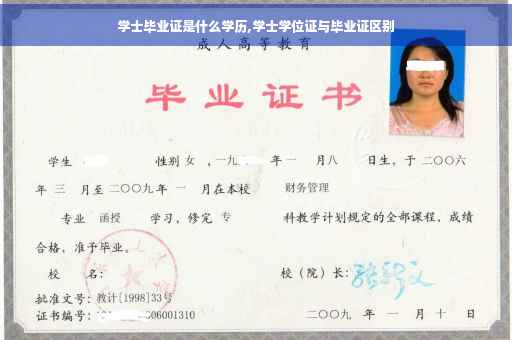 学士毕业证是什么学历,学士学位证与毕业证区别
成人高等教育
毕业证书
学生 性别 女 ,一九 年 一 月八 日生，于 二〇〇六
年 三 月至 二〇〇九 年 一 月在本校 财务管理
专业 函授 学习，修完 专 科教学计划规定的全部课程，成绩
合格，准予毕业。
校 名： 校（院）长：
批准文号：教计[1998]33号
证书编号： 06001310 二〇〇九 年 一 月 十 日